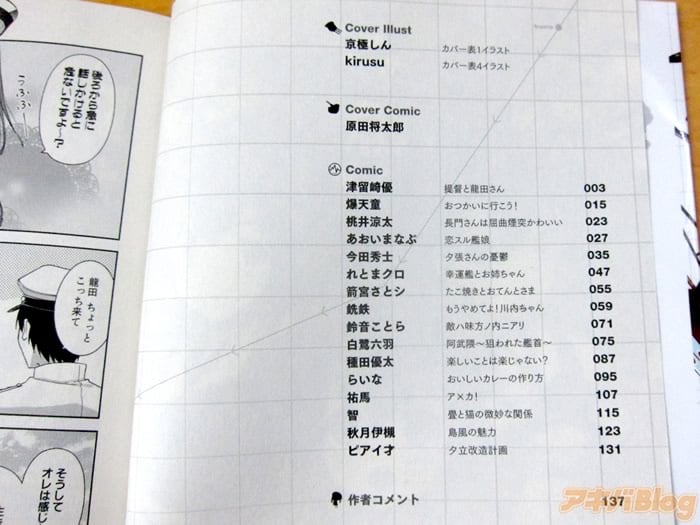 後ろから急に
話しかけると
危ないですよ〜?
うふふ
龍田 ちょっと
こっち来て
そうして
オレは感じ
Cover Illust
京極しん カバー表1イラスト
kirusu カバー表4イラスト
Cover Comic
原田将太郎
Comic
津留崎優 提督と龍田さん 003
爆天童 おつかいに行こう! 015
桃井涼太 長門さんは屈曲煙突かわいい 023
あおいまなぶ 恋スル艦娘 027
今田秀士 夕張さんの憂鬱 035
れとまクロ 幸運艦とお姉ちゃん 047
箭宮さとシ たこ焼きとおてんとさま 055
銑鉄 もうやめてよ!川内ちゃん 059
鈴音ことら 敵ハ味方ノ内ニアリ 071
白鷺六羽 阿武隈〜狙われた艦首〜 075
種田優太 楽しいことは楽じゃない? 087
らいな おいしいカレーの作り方 095
祐馬 ア×カ! 107
智 畳と猫の微妙な関係 115
秋月伊槻 島風の魅力 123
ピアイ才 夕立改造計画 131
作者コメント 137
アキバBlog